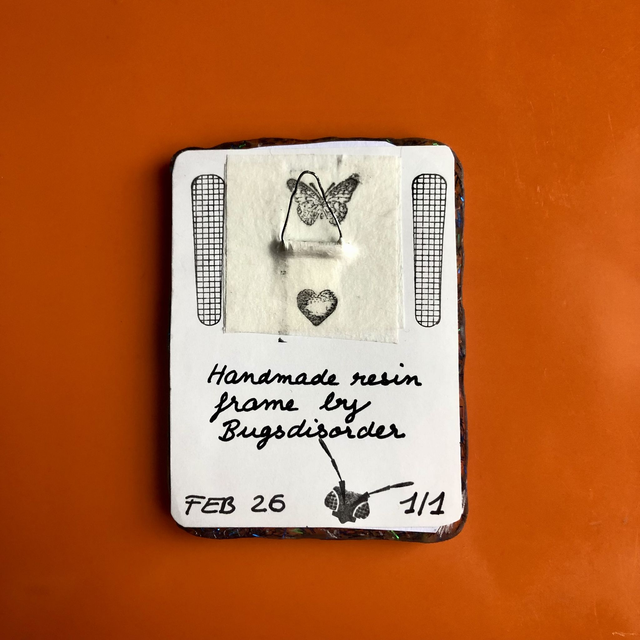 Handmade resin
frame by
Bugsdisorder
FEB 26
1/1